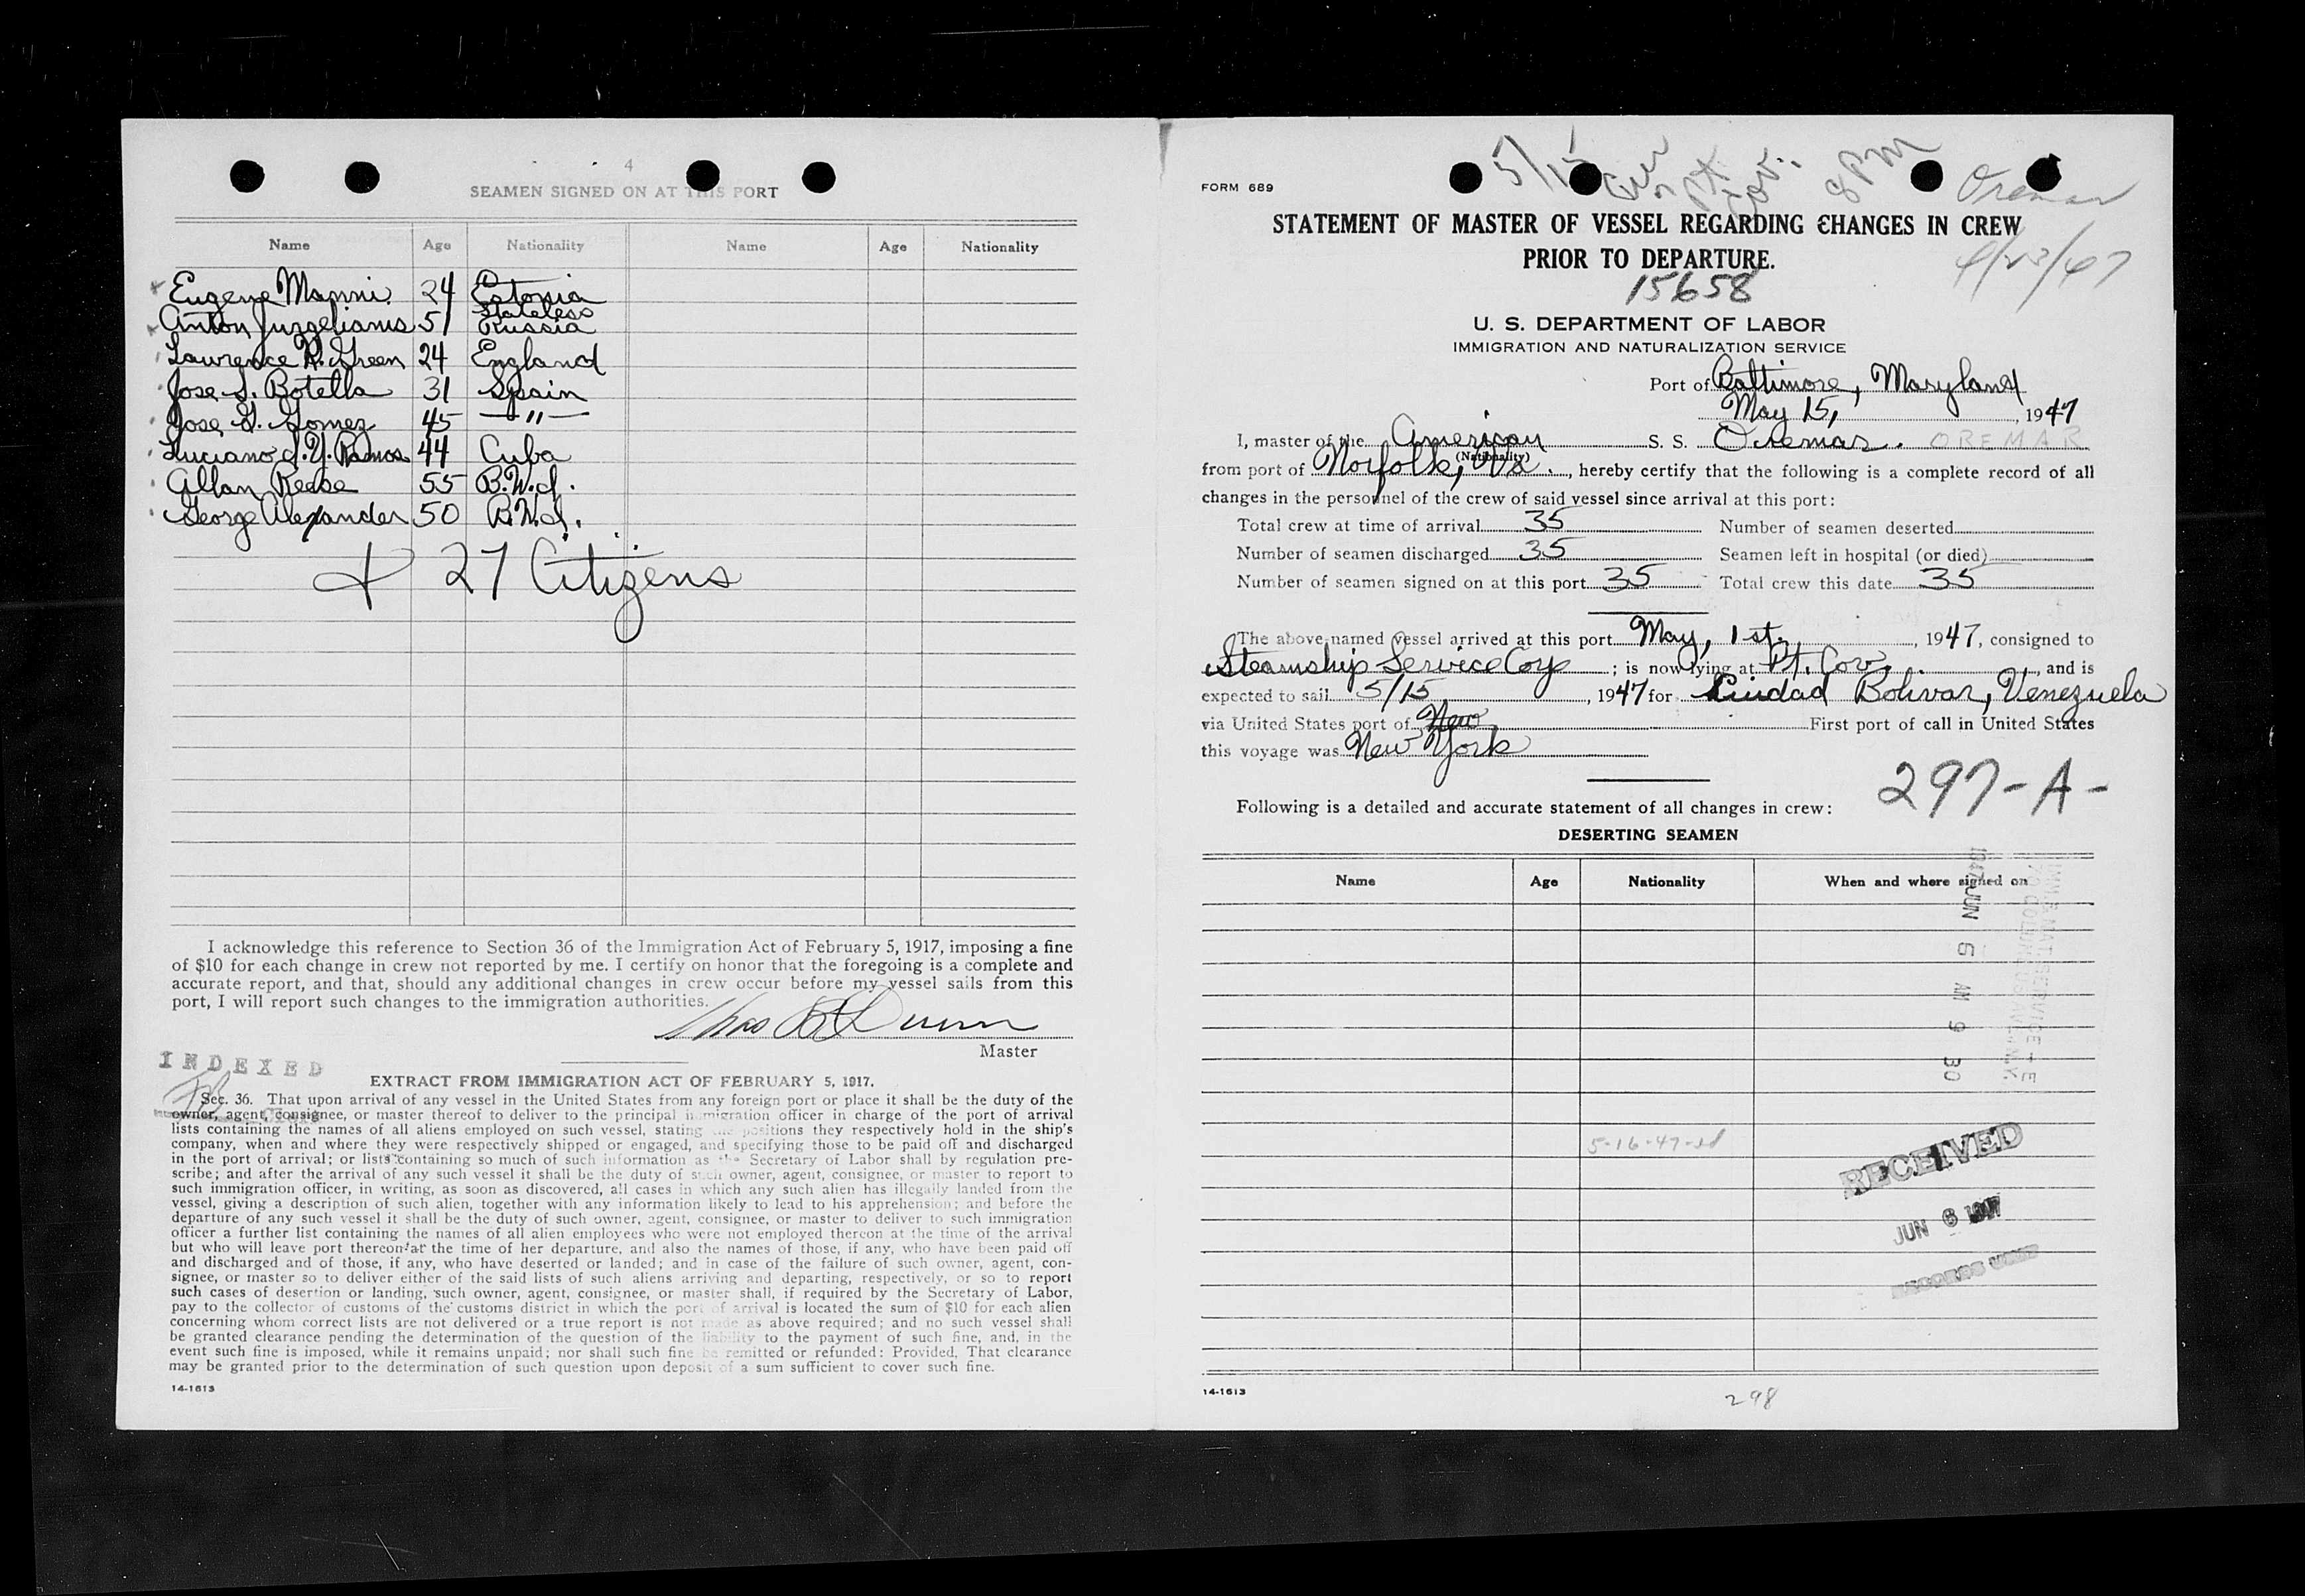 4
SEAMEN SIGNED ON AT THIS PORT
Name Age Nationality Name Age Nationality
Eugene Manni 24 Estonia
Stateless
Anton Jurgelianis 51 Russia
Lawrence R. Green 24 England
Jose S. Botella 31 Spain
Jose G. Gomez 45 — " —
Luciano J. Y. Ramos 44 Cuba
Allan Reese 55 B.W.I.
George Alexander 50 B.W.I.
+ 27 Citizens
I acknowledge this reference to Section 36 of the Immigration Act of February 5, 1917, imposing a fine
of $10 for each change in crew not reported by me. I certify on honor that the foregoing is a complete and
accurate report, and that, should any additional changes in crew occur before my vessel sails from this
port, I will report such changes to the immigration authorities.
Master
INDEXED
EXTRACT FROM IMMIGRATION ACT OF FEBRUARY 5, 1917.
Sec. 36. That upon arrival of any vessel in the United States from any foreign port or place it shall be the duty of the
owner, agent, consignee, or master thereof to deliver to the principal immigration officer in charge of the port of arrival
lists containing the names of all aliens employed on such vessel, stating the positions they respectively hold in the ship's
company, when and where they were respectively shipped or engaged, and specifying those to be paid off and discharged
in the port of arrival; or lists containing so much of such information as the Secretary of Labor shall by regulation pre-
scribe; and after the arrival of any such vessel it shall be the duty of such owner, agent, consignee, or master to report to
such immigration officer, in writing, as soon as discovered, all cases in which any such alien has illegally landed from the
vessel, giving a description of such alien, together with any information likely to lead to his apprehension; and before the
departure of any such vessel it shall be the duty of such owner, agent, consignee, or master to deliver to such immigration
officer a further list containing the names of all alien employees who were not employed thereon at the time of the arrival
but who will leave port thereon at the time of her departure, and also the names of those, if any, who have been paid off
and discharged and of those, if any, who have deserted or landed; and in case of the failure of such owner, agent, con-
signee, or master so to deliver either of the said lists of such aliens arriving and departing, respectively, or so to report
such cases of desertion or landing, such owner, agent, consignee, or master shall, if required by the Secretary of Labor,
pay to the collector of customs of the customs district in which the port of arrival is located the sum of $10 for each alien
concerning whom correct lists are not delivered or a true report is not made as above required; and no such vessel shall
be granted clearance pending the determination of the question of the liability to the payment of such fine, and, in the
event such fine is imposed, while it remains unpaid; nor shall such fine be remitted or refunded: Provided, That clearance
may be granted prior to the determination of such question upon deposit of a sum sufficient to cover such fine.
14-1613
5/15 Pt. Cov. 8 PM Oremar
FORM 689
STATEMENT OF MASTER OF VESSEL REGARDING CHANGES IN CREW
PRIOR TO DEPARTURE.
4/23/47
15658
U. S. DEPARTMENT OF LABOR
IMMIGRATION AND NATURALIZATION SERVICE
Port of Baltimore, Maryland
May 15, 1947
I, master of the American S. S. Oremar. OREMAR
(Nationality)
from port of Norfolk, Va., hereby certify that the following is a complete record of all
changes in the personnel of the crew of said vessel since arrival at this port:
Total crew at time of arrival 35 Number of seamen deserted
Number of seamen discharged 35 Seamen left in hospital (or died)
Number of seamen signed on at this port 35 Total crew this date 35
The above-named vessel arrived at this port May, 1st, 1947, consigned to
Steamship Service Corp; is now lying at Pt. Cov., and is
expected to sail 5/15, 1947 for Ciudad Bolivar, Venezuela
via United States port of New First port of call in United States
this voyage was New York
297-A-
Following is a detailed and accurate statement of all changes in crew:
DESERTING SEAMEN
Name Age Nationality When and where signed on
1947 JUN 5 AM 9 30
5-16-47
RECEIVED
JUN 6 1947
RECORDS UNIT
14-1613
298